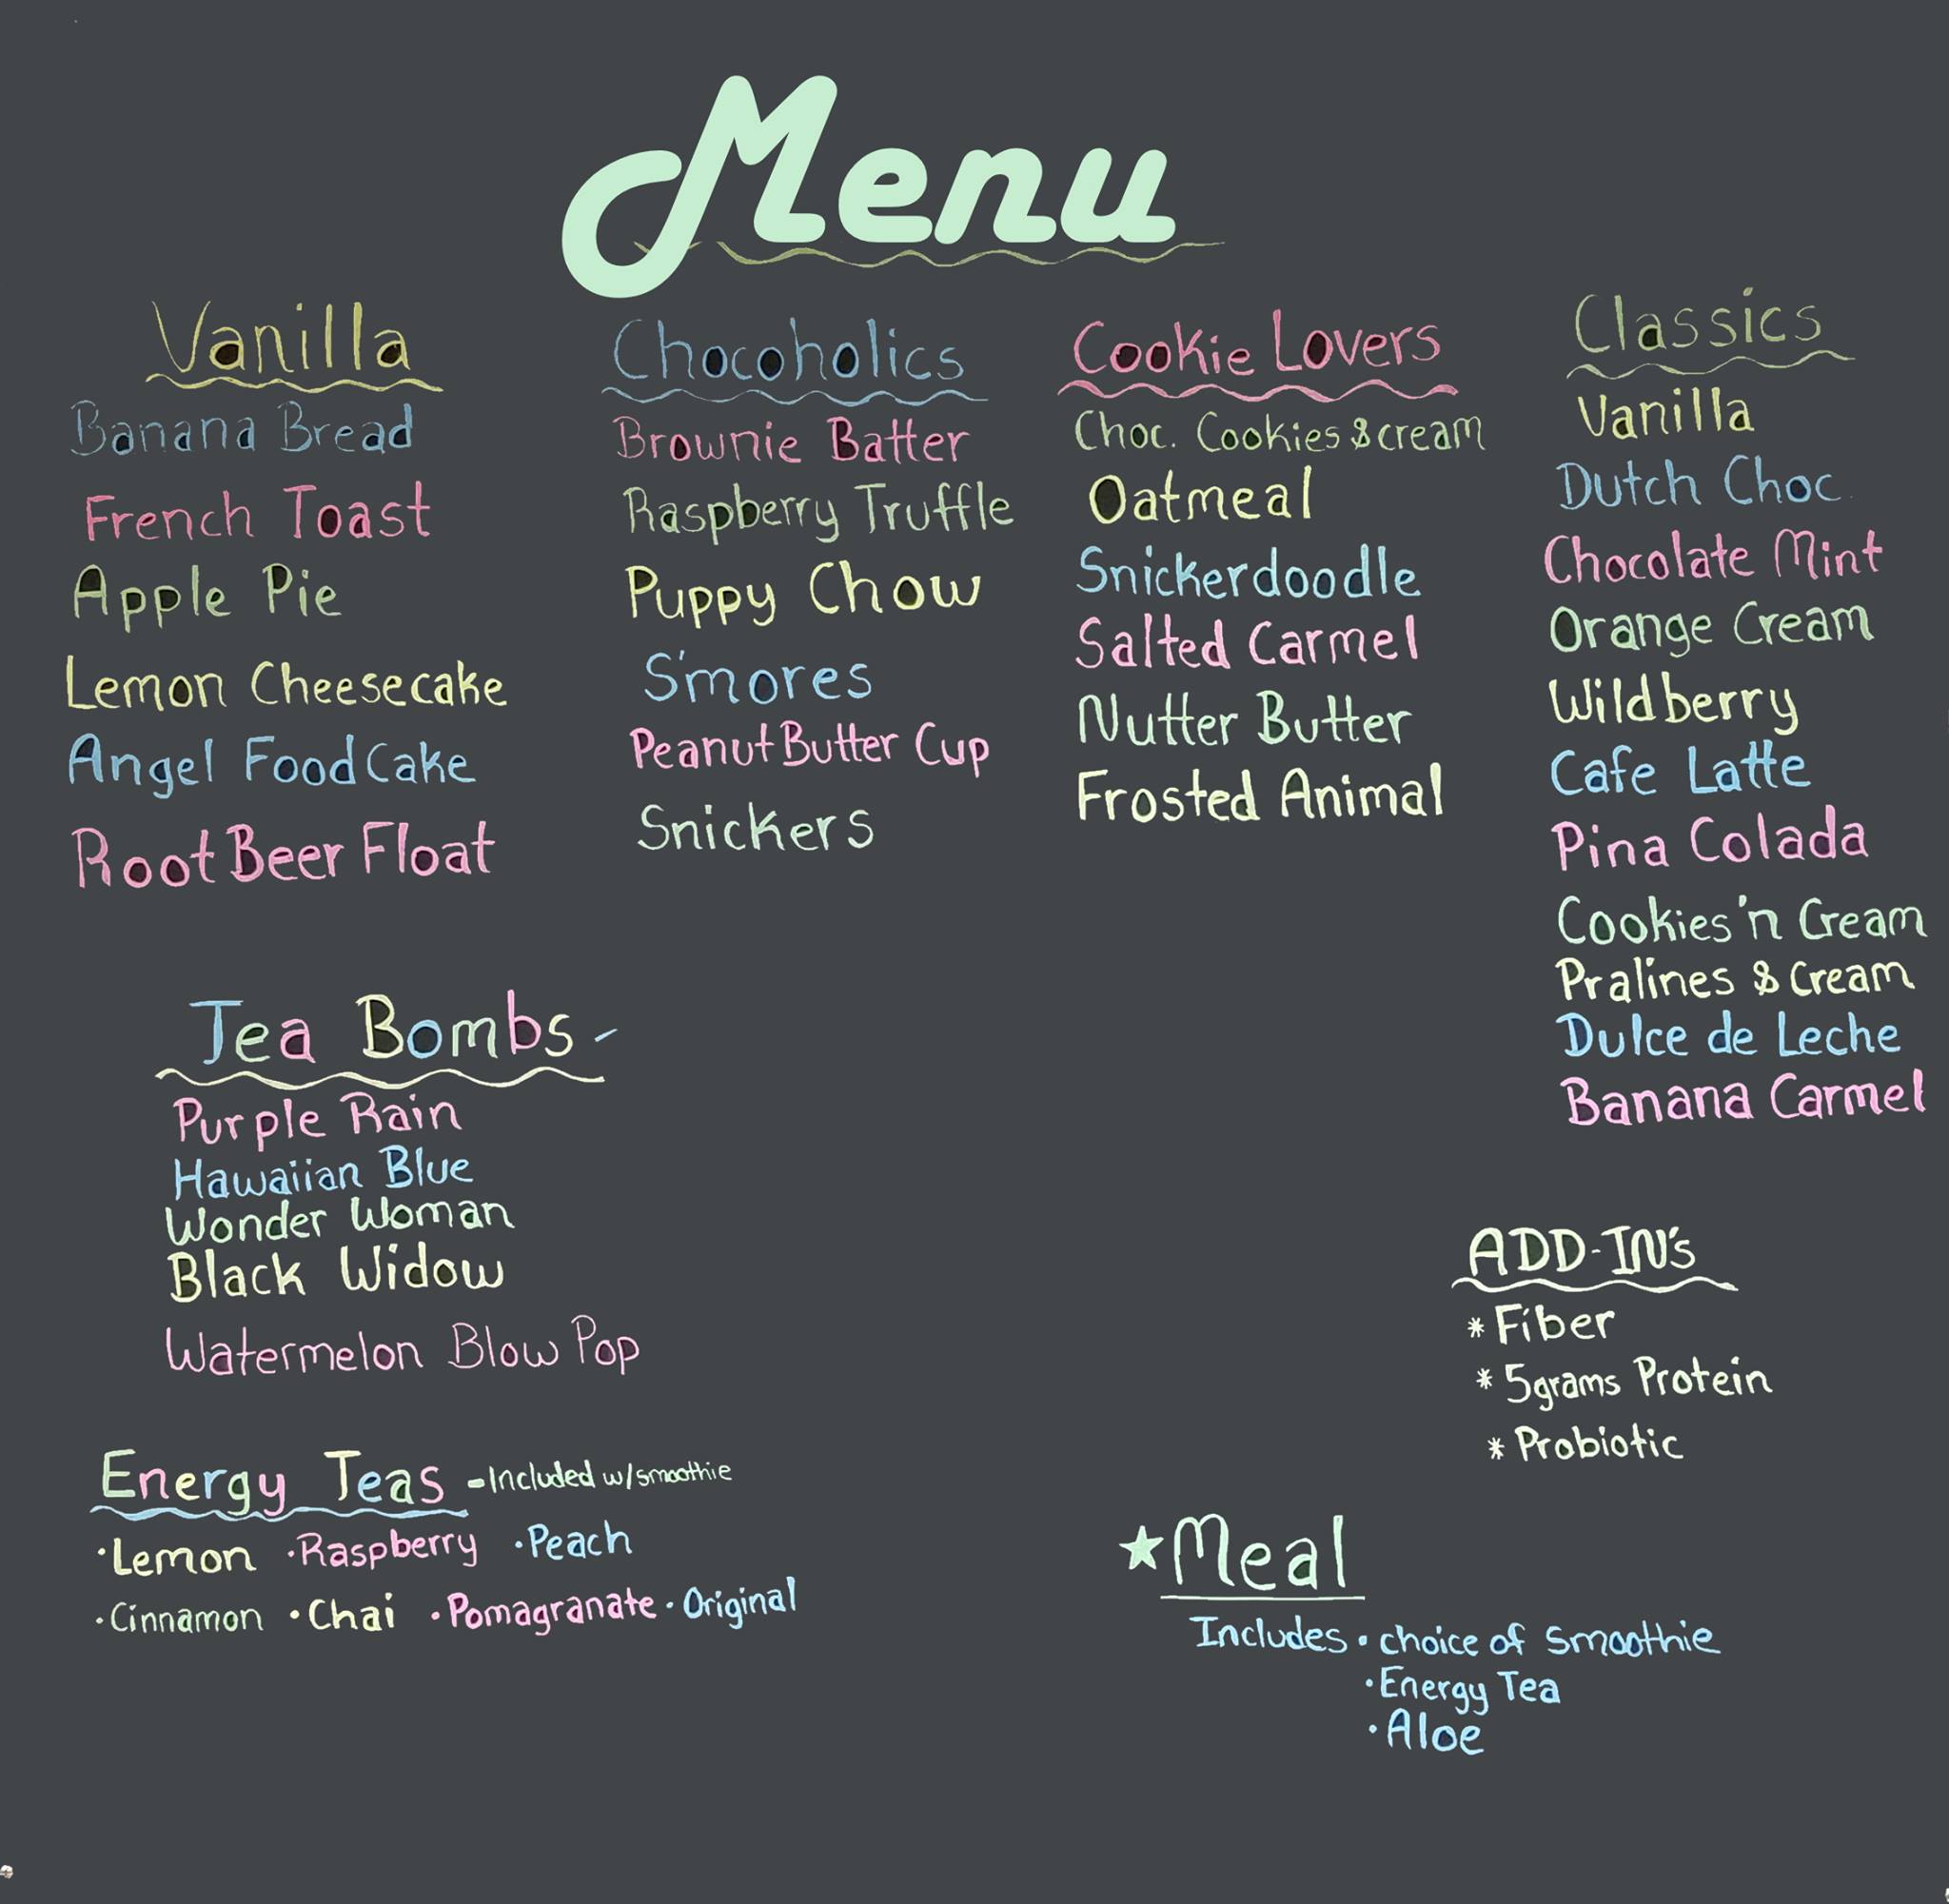 Menu
Vanilla
Banana Bread
French Toast
Apple Pie
Lemon Cheesecake
Angel Food Cake
Root Beer Float
Chocoholics
Brownie Batter
Raspberry Truffle
Puppy Chow
S'mores
Peanut Butter Cup
Snickers
Cookie Lovers
Choc. Cookies & cream
Oatmeal
Snickerdoodle
Salted Carmel
Nutter Butter
Frosted Animal
Classics
Vanilla
Dutch Choc.
Chocolate Mint
Orange Cream
Wildberry
Cafe Latte
Pina Colada
Cookies 'n Cream
Pralines & Cream
Dulce de Leche
Banana Carmel
Tea Bombs -
Purple Rain
Hawaiian Blue
Wonder Woman
Black Widow
Watermelon Blow Pop
Energy Teas - Included w/ smoothie
· Lemon · Raspberry · Peach
· Cinnamon · Chai · Pomagranate · Original
ADD-IN's
* Fiber
* 5grams Protein
* Probiotic
★ Meal
Includes · choice of smoothie
· Energy Tea
· Aloe